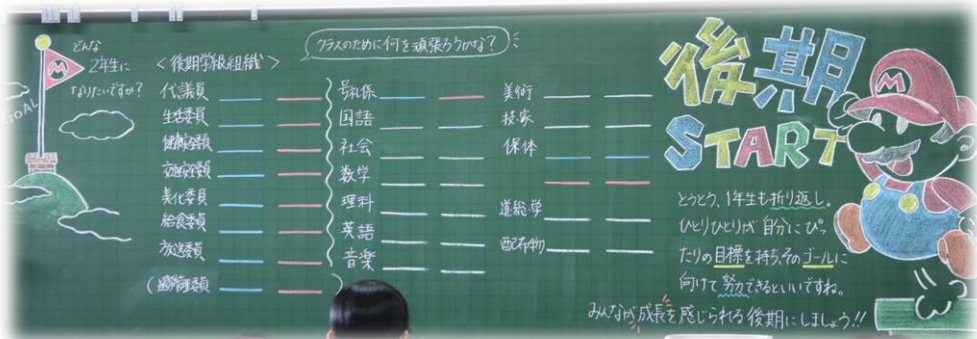 GOAL
M
どんな
2年生に
なりたいですか?
<後期学級組織>
クラスのために何を頑張ろうかな?
代議員
生活委員
交通安全委員
美化委員
給食委員
放送委員
号礼係
国語
社会
数学
理科
英語
音楽
美術
技家
保体
道総学
配布物
後期
START
M
とうとう、1年生も折り返し。
ひとりひとりが自分にぴっ
たりの目標を持ち、そのゴールに
向けて努力できるといいですね。
みんなが成長を感じられる後期にしましょう!!